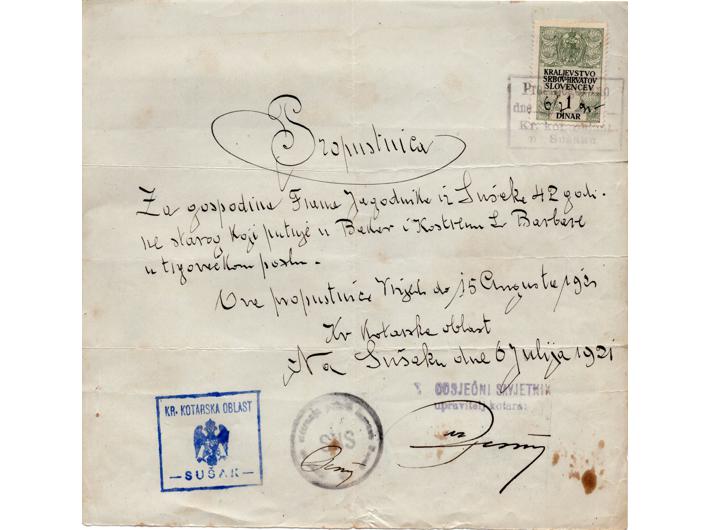 KRALJEVSTVO
SRBOV-HRVATOV
SLOVENCEV
1
DINAR
Kr. kot.
u Sušaku
Propustnica
Za gospodina Frana Jagodnika iz Sušaka 42 godi-
ne starog koji putuje u Bakar i Kostrenu S. Barbaru
u trgovačkom poslu.
Ova propustnica vrijedi do 15 Augusta 1921
Kr Kotarska oblast
Na Sušaku dne 6 Julija 1921
ODSJEČNI SAVJETNIK
upravitelj kotara:
KR. KOTARSKA OBLAST
SUŠAK
SHS